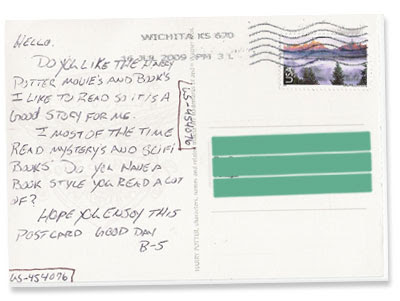 HELLO.
DO YOU LIKE THE HARRY
POTTER MOVIE'S AND BOOK'S
I LIKE TO READ SO IT IS A
GOOD STORY FOR ME.
I MOST OF THE TIME
READ MYSTERYS AND SCIFI
BOOKS. DO YOU HAVE A
BOOK STYLE YOU READ A LOT
OF?
HOPE YOU ENJOY THIS
POSTCARD GOOD DAY
B-5
US-454076
WICHITA KS 670
JUL 2009 PM 3 L
USA
US-454076
HARRY POTTER, characters, names and related